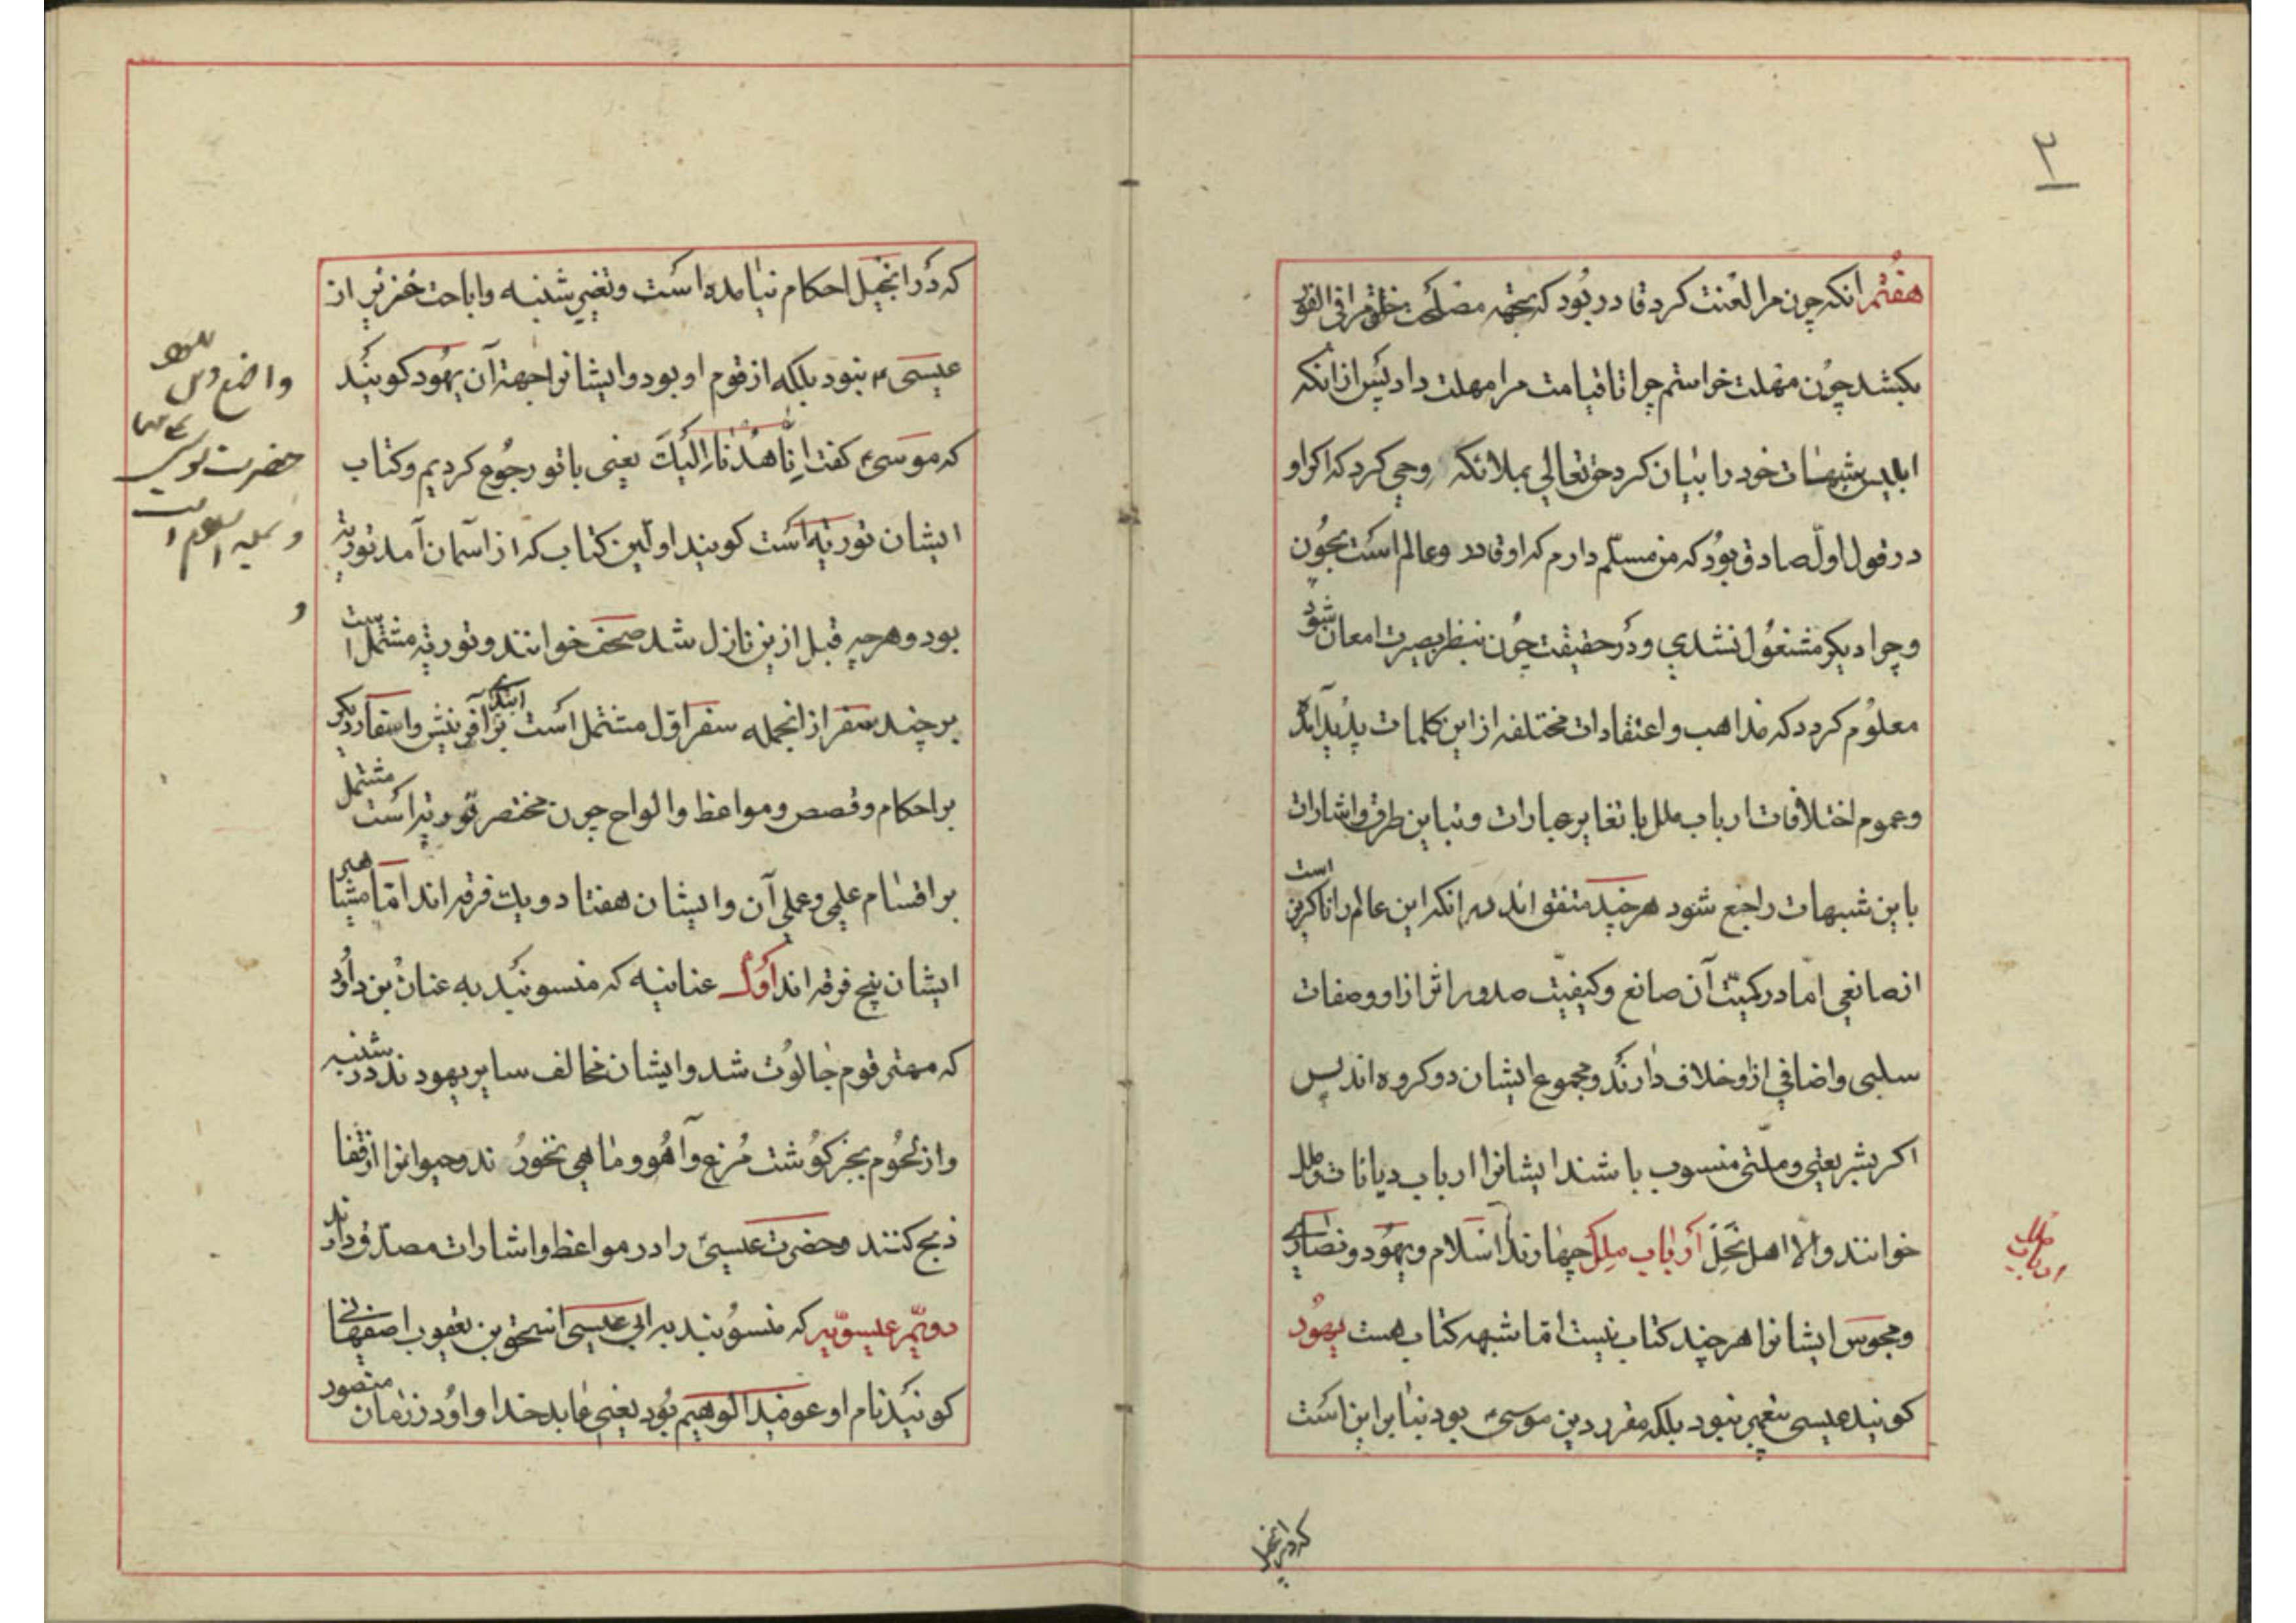 ۳
هفتم انکه چون مرا لعنت کرد قادر بود که بجهه مصلحت خلق مرا فی الفور
بکشد چون مهلت خواستم چرا تا قیامت مرا مهلت داد پس از انکه
ابلیس شبهات خود را بیان کرد حق تعالی بملائکه وحی کرد که اکر او
در قول اول صادق بود که من مسلم دارم که او قادر و عالم است بچون
و چرا دیکر مشغول نشدی و در حقیقت چون بنظر بصیرت امعان شود
معلوم کردد که مذاهب و اعتقادات مختلفه از این کلمات پدید آمده
و عموم اختلافات ارباب ملل با تغایر عبارات و تباین طرق و اشارات
باین شبهات راجع شود هر چند متفق اند بر انکه این عالم را ناکزیر است
از صانعی اما در کمیت آن صانع و کیفیت صدور اثر از او و صفات
سلبی و اضافی از او خلاف دارند و مجموع ایشان دو کروه اند پس
اکر بشریعتی و ملتی منسوب باشند ایشانرا ارباب دیانات و ملل
خوانند و الا اهل نحل ارباب ملل چهارند اسلام و یهود و نصاری
و مجوس ایشانرا هر چند کتاب نیست اما شبهه کتاب هست یهود
کویند عیسی پیغمبر نبود بلکه مقرر دین موسی بود بنا بر این است
ارباب ملل
که در انجیل
که در انجیل احکام نیامده است و تغییر شنبه و اباحت خنزیر از
عیسی ع نبود بلکه از قوم او بود و ایشانرا جهة آن یهود کویند
که موسی ع کفت انا هدنا الیک یعنی با تو رجوع کردیم و کتاب
ایشان توریة است کویند اولین کتاب که از آسمان آمد توریة
بود و هر چه قبل ازین نازل شد صحف خوانند و توریة مشتمل است
بر چند سفر از انجمله سفر اول مشتمل است بر ابتداء آفرینش و اسفار دیکر
بر احکام و قصص و مواعظ و الواح چون مختصر توریة است مشتمل
بر اقسام علمی و عملی آن و ایشان هفتاد و یک فرقه اند اما مشاهیر
ایشان پنج فرقه اند اول عنانیه که منسوبند به عنان بن داود
که مهتر قوم جالوت شد و ایشان مخالف سایر یهودند در شنبه
و از لحوم بجز کوشت مرغ و آهو و ماهی نخورند و حیوانرا از قفا
ذبح کنند و حضرت عیسی را در مواعظ و اشارات مصدق دارند
دویم عیسویه که منسوبند به ابی عیسی اسحق بن یعقوب اصفهانی
کویند نام او عوفید الوهیم بود یعنی عابد خدا و او در زمان منصور
واضع دین
حضرت موسی
و علیه السلام است